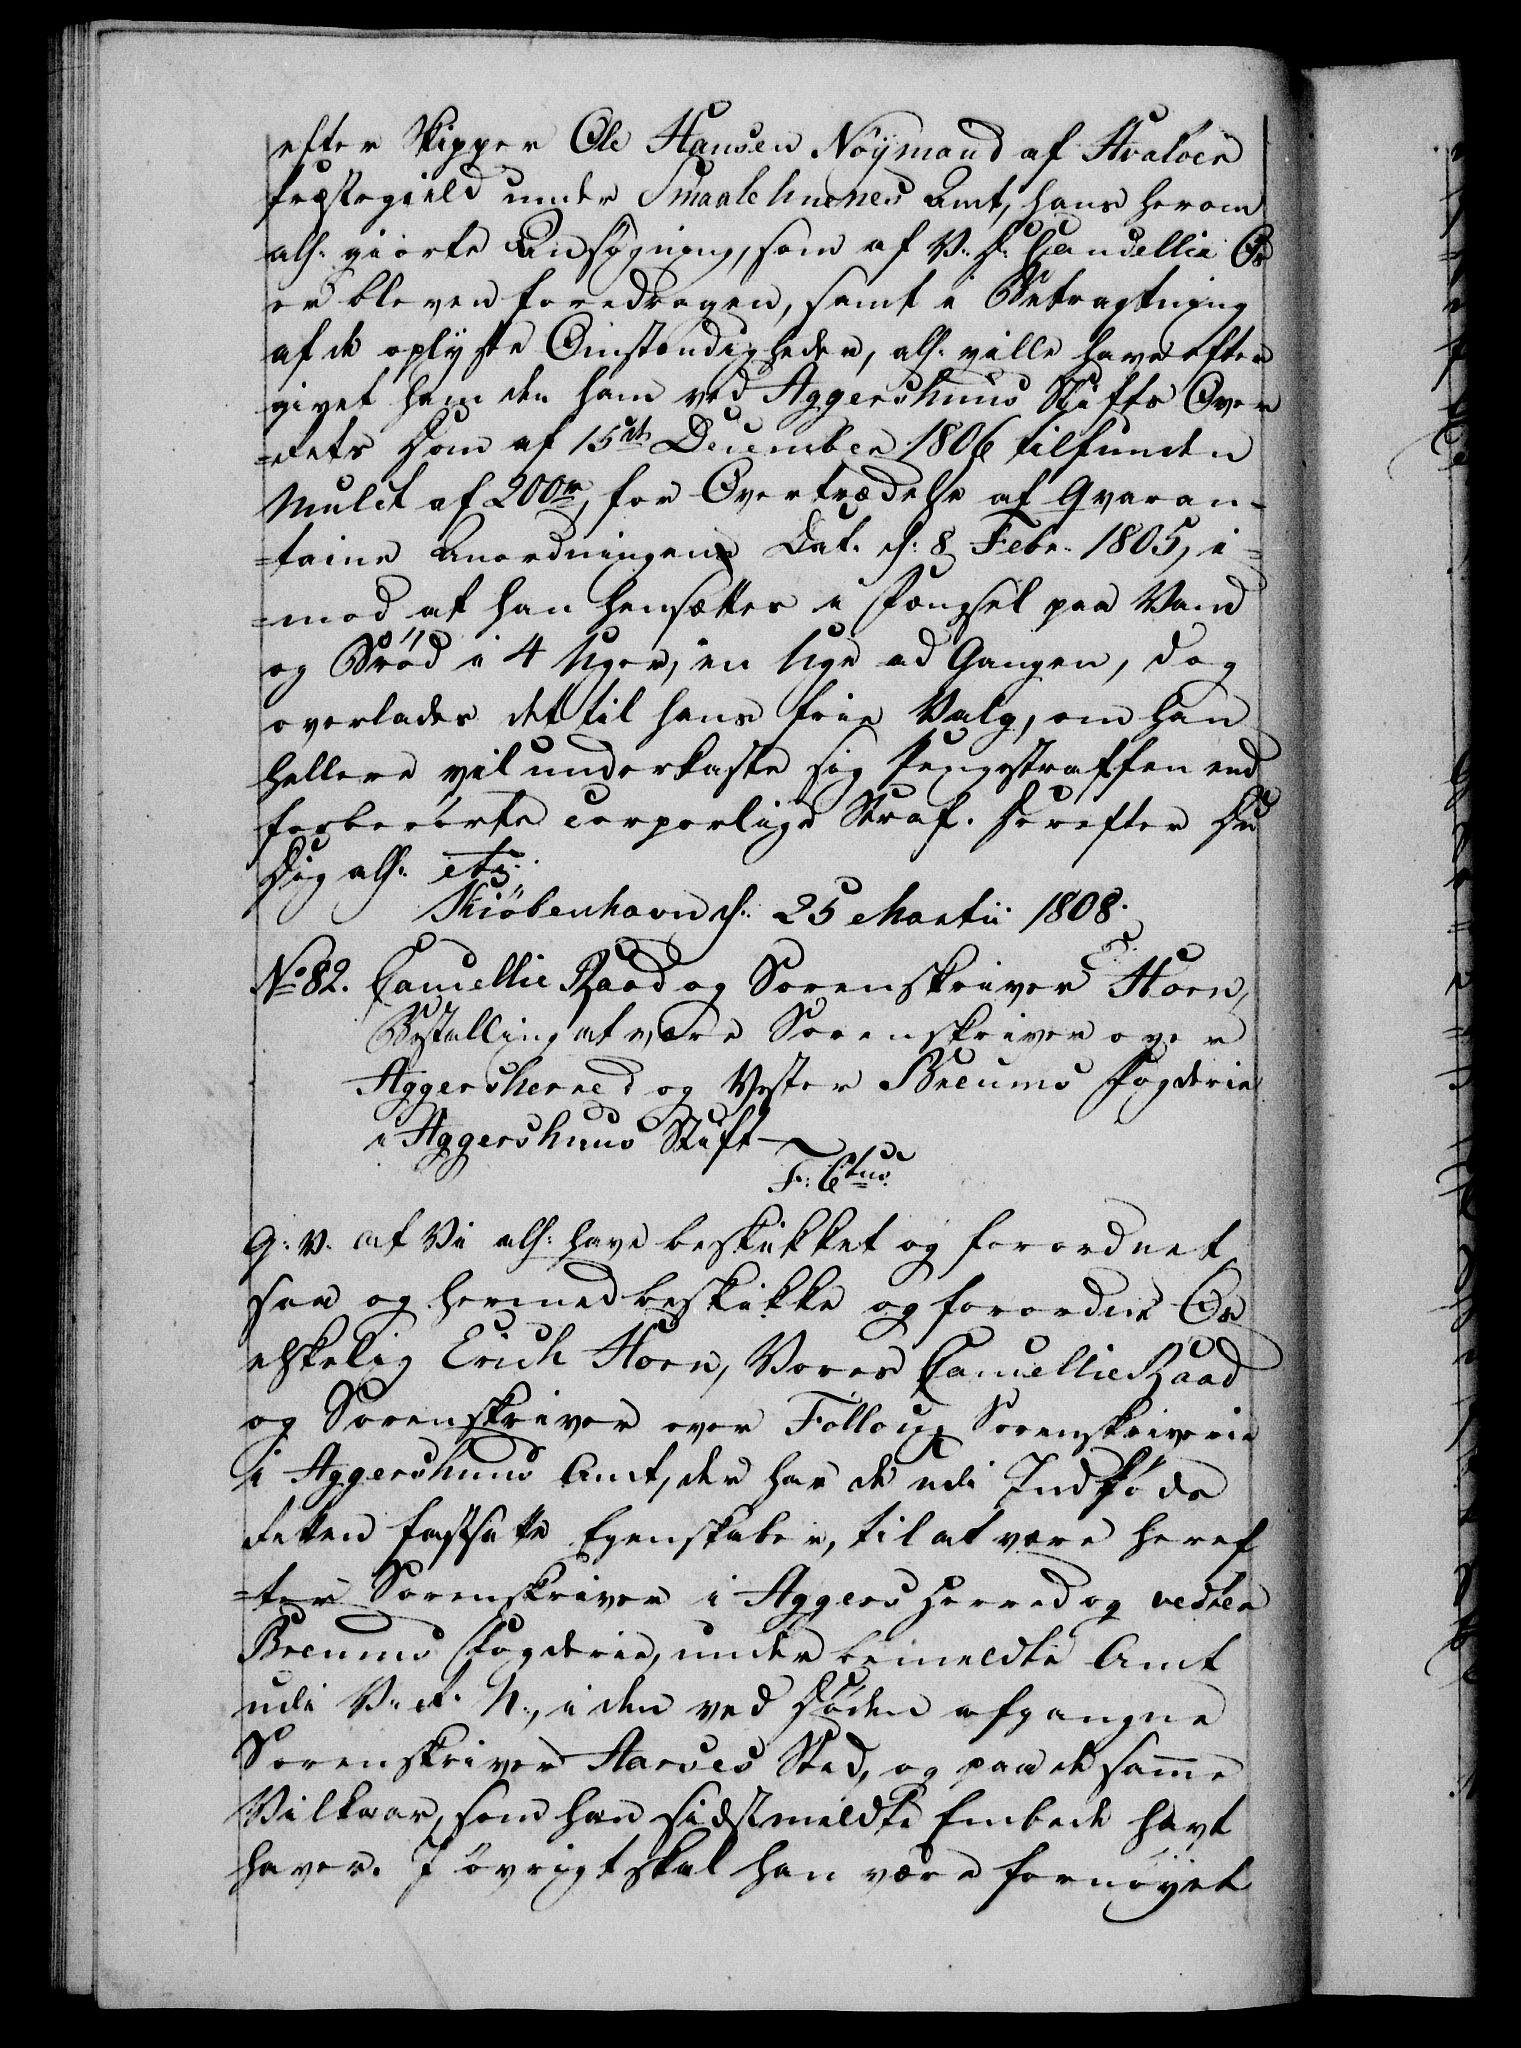 efter Skipper Ole Hansen Nøÿmand af Hvaløer
Præstegield under Smaalehnenes Amt, hans herom
alh: giorte Ansøgning, som af V: D: Cancellie Os
er bleven foredragen, samt i Betragtning
af de oplyste Omstændigheder, alh. ville have efter
givet ham den ham ved Aggershuus Stifts Over
=rets Dom af 15de December 1806 tilfundne
Mulct af 200 rd, for Overtrædelse af Qvaran-
=taine Anordningen Dat. d: 8 Febr. 1805, i=
=mod at han hensættes i Fængsel paa Vand
og Brød i 4 Uger, en Uge ad Gangen, dog
overlades det til hans frie Valg, om han
hellere vil underkaste sig Pengestraffen end
forberørte corporlige Straf. Herefter Du
Dig alh: etc:
Kiöbenhavn d: 25 Martii 1808.
No 82. Cancellie Raad og Sorenskriver E: Horn,
Bestalling at være Sorenskriver over
Aggersherred og Vester Breums Fogderie
i Aggershuus Stift
F: 6tus
G: V. at Vi alh: have beskikket og forordnet
saa og hermed beskikke og forordne Os
elskelig Erich Horn, Vores Cancellie Raad
og Sorenskriver over Folloug Sorenskriverie
i Aggershuus Amt, der har de udi Indføds
retten fastsatte Egenskaber, til at være heref
=ter Sorenskriver i Aggers Herred og vester
Breums Fogderie, under bemeldte Amt
udi V: R: N:, i den ved Døden afgangne
Sorenskriver Aarses Sted, og paa de samme
Vilkaar, som han sidstmeldte Embede havt
haver. I øvrigt skal han være fornøyet